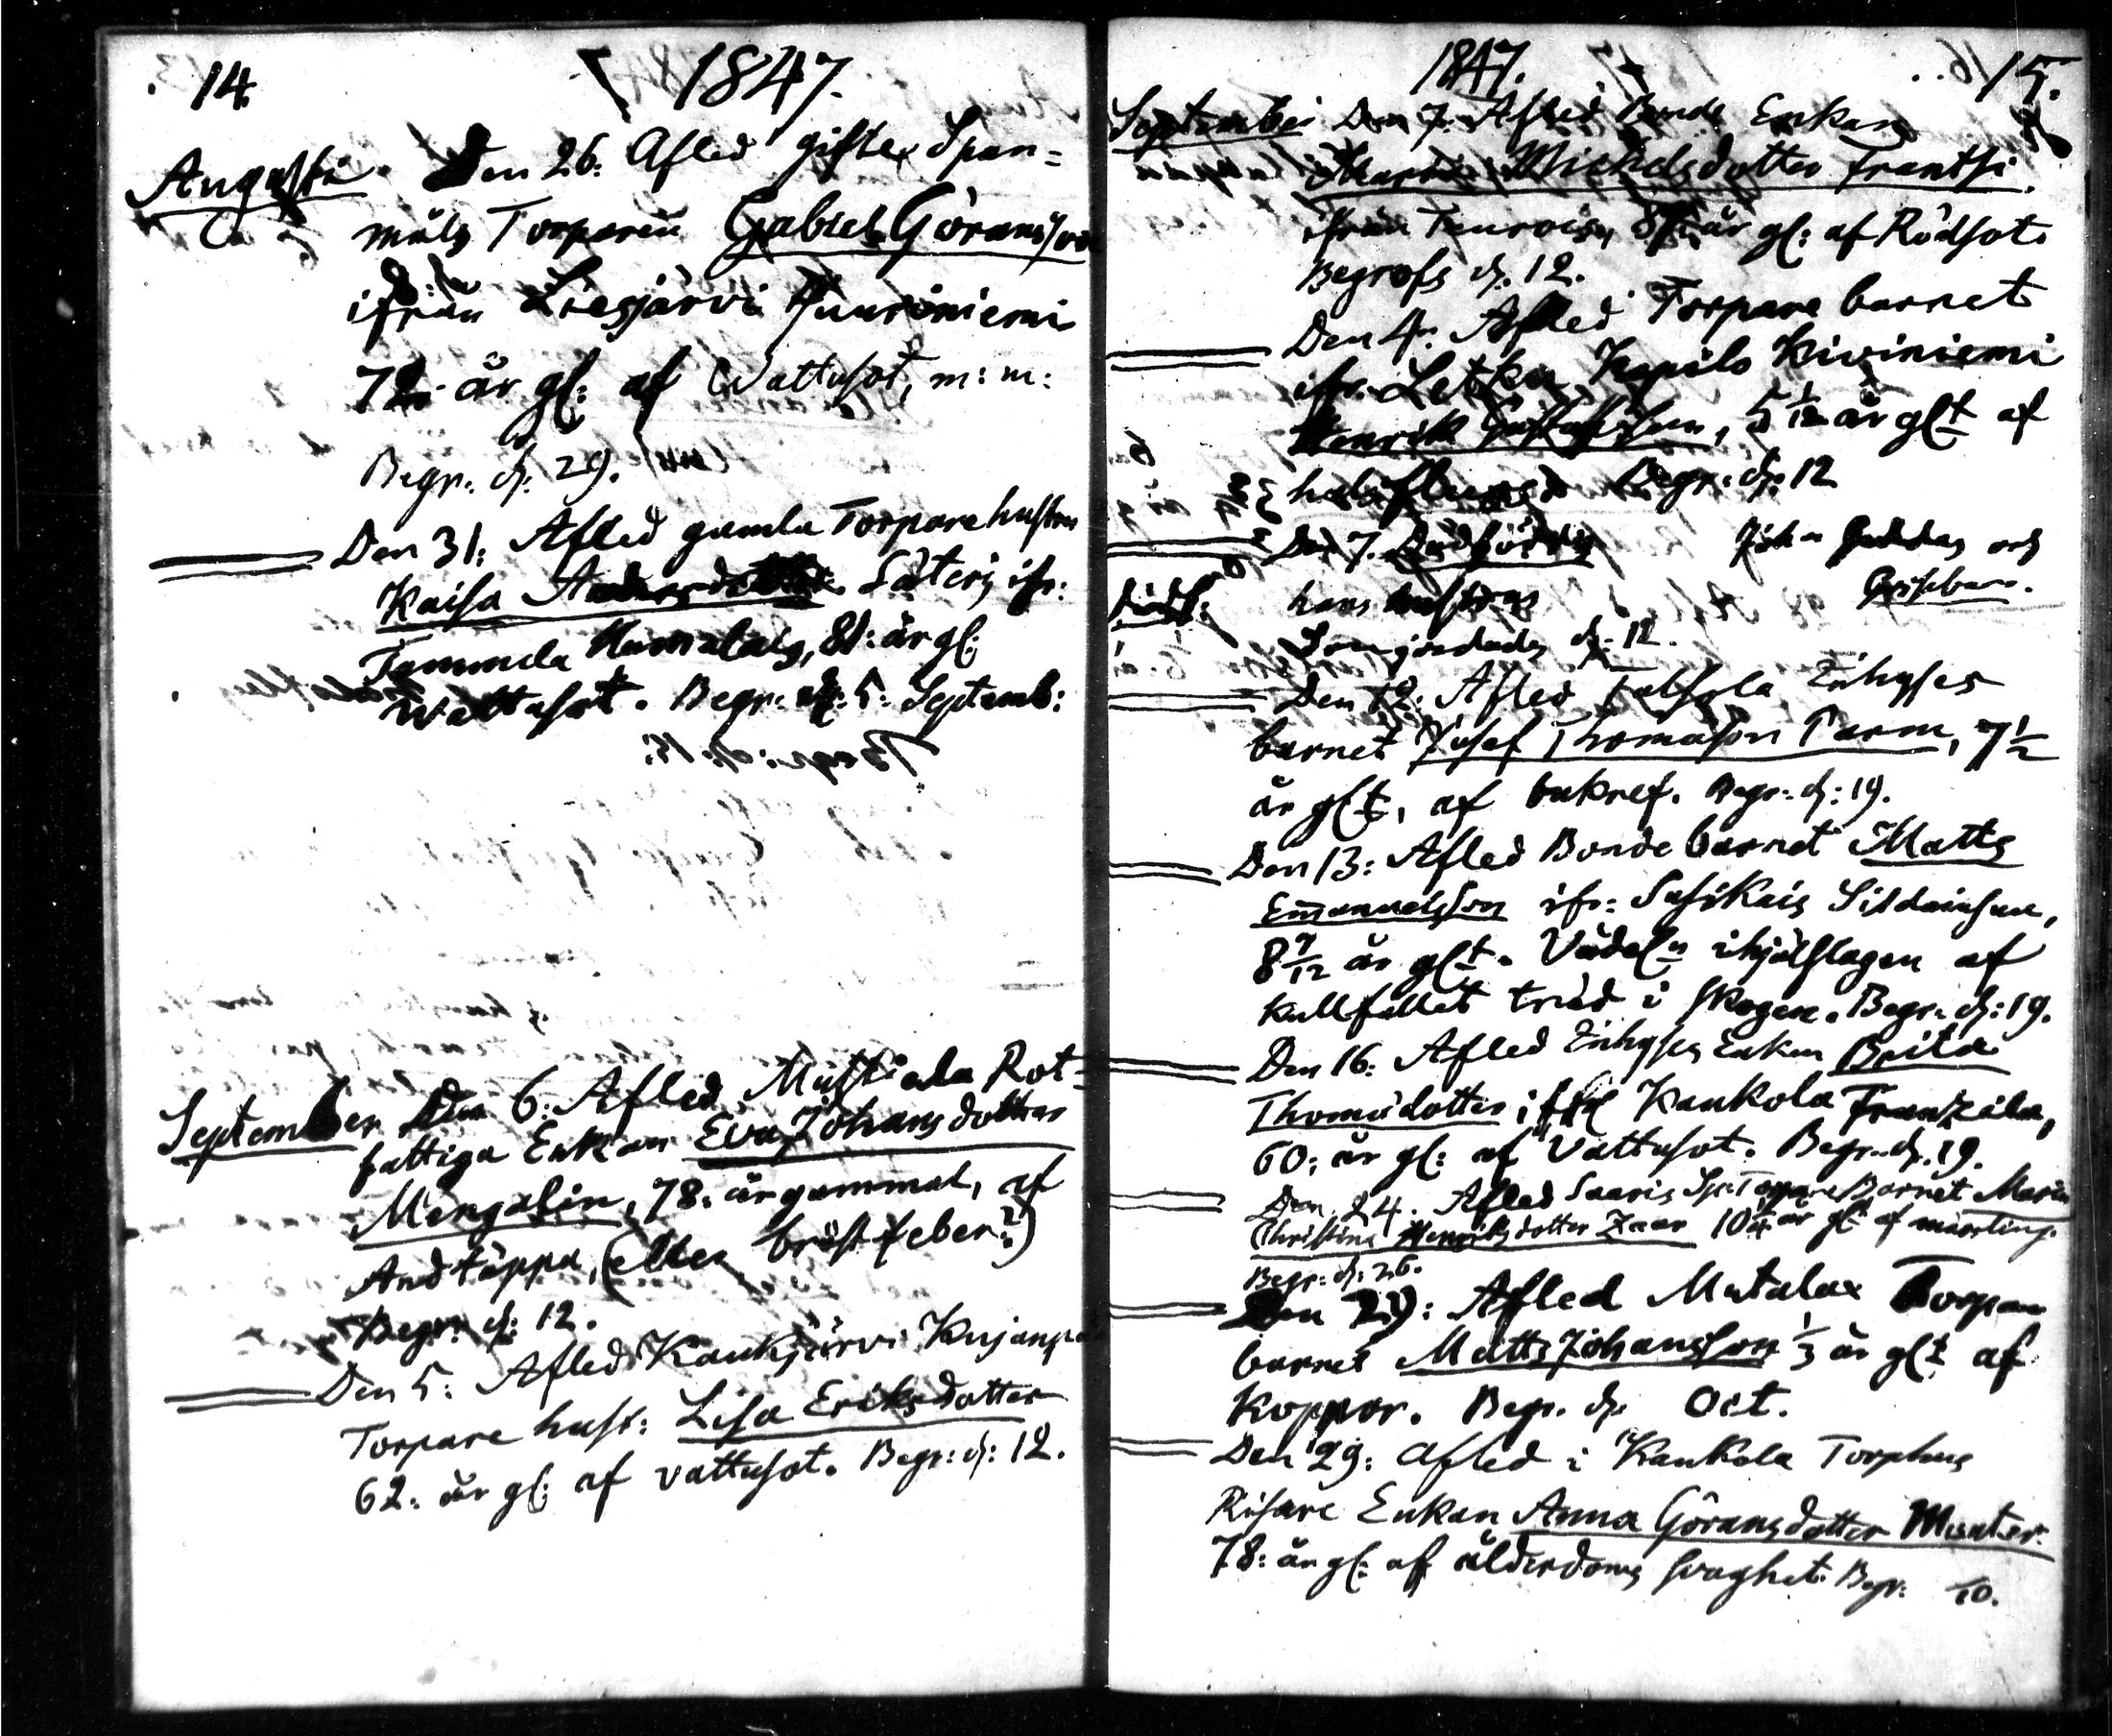 14.
1847.
Augusti. Den 26. Afled gifte Span=
måls Torparen Gabriel Göransson
ifrån Liesjärvi Suuriniemi
72. år gl: af Wattusot, m: m:
Begr: d: 29.
Den 31: Afled gamla Torparehustru
Kaisa Andersdotter Säterj ifr:
Tammela Hamalais, 81: år gl:
Wattusot. Begr: d: 5: Septemb:
September Den 6: Afled Mustiala Rot=
fattiga Enkan Eva Johansdotter
Mengalin, 78: år gammal, af
Andtäppa, (eller bröstfeber?)
Begr: d: 12.
Den 5: Afled Kaukjärvi Kujanpä
Torpare hust: Lisa Eriksdotter
62: år gl: af vattusot. Begr: d: 12.
1847.
15.
September Den 7. Afled Bonde Enkan
Maria Michelsdotter Frantsi
ifrån år gl: af Rödsot.
Begrofs d: 12.
Den 4: Afled Torpare barnet
ifr. Letku Kiviniemi
Henrik 5 1/12 år glt af
Begr: d: 12
Den 7. Dödfödda Joh:n och
hans hustrus
Som jordades d: 12.
Den 12: Afled Inhyses
barnet Josef Thomasson Parm, 7 1/2
år glt, af bukref. Begr: d: 19.
Den 13: Afled Bonde barnet Matts
Emanuelsson ifr: Susikais Sildainsuu,
8 7/12 år glt. Vådeln ihjälslagen af
kullfallet träd i skogen. Begr: d: 19.
Den 16: Afled Inhyses Enkan Brita
Thomædotter Kaukola Franzila,
60: år gl: af Vattusot. Begr. d. 19.
Den 24. Afled Saaris Sp: Torpare Barnet Maria
Christina Henriksdotter Zaar 10 år glt af mässling.
Begr: d: 26.
Den 29: Afled Mutala Torpare
barnet Matts Johansson 1/3 år glt af
Koppor. Begr. d. Oct.
Den 29: Afled i Kaukola Torphus
Enkan Anna Göransdotter Munter.
78: år gl: af ålderdoms svaghet. Begr: 10.